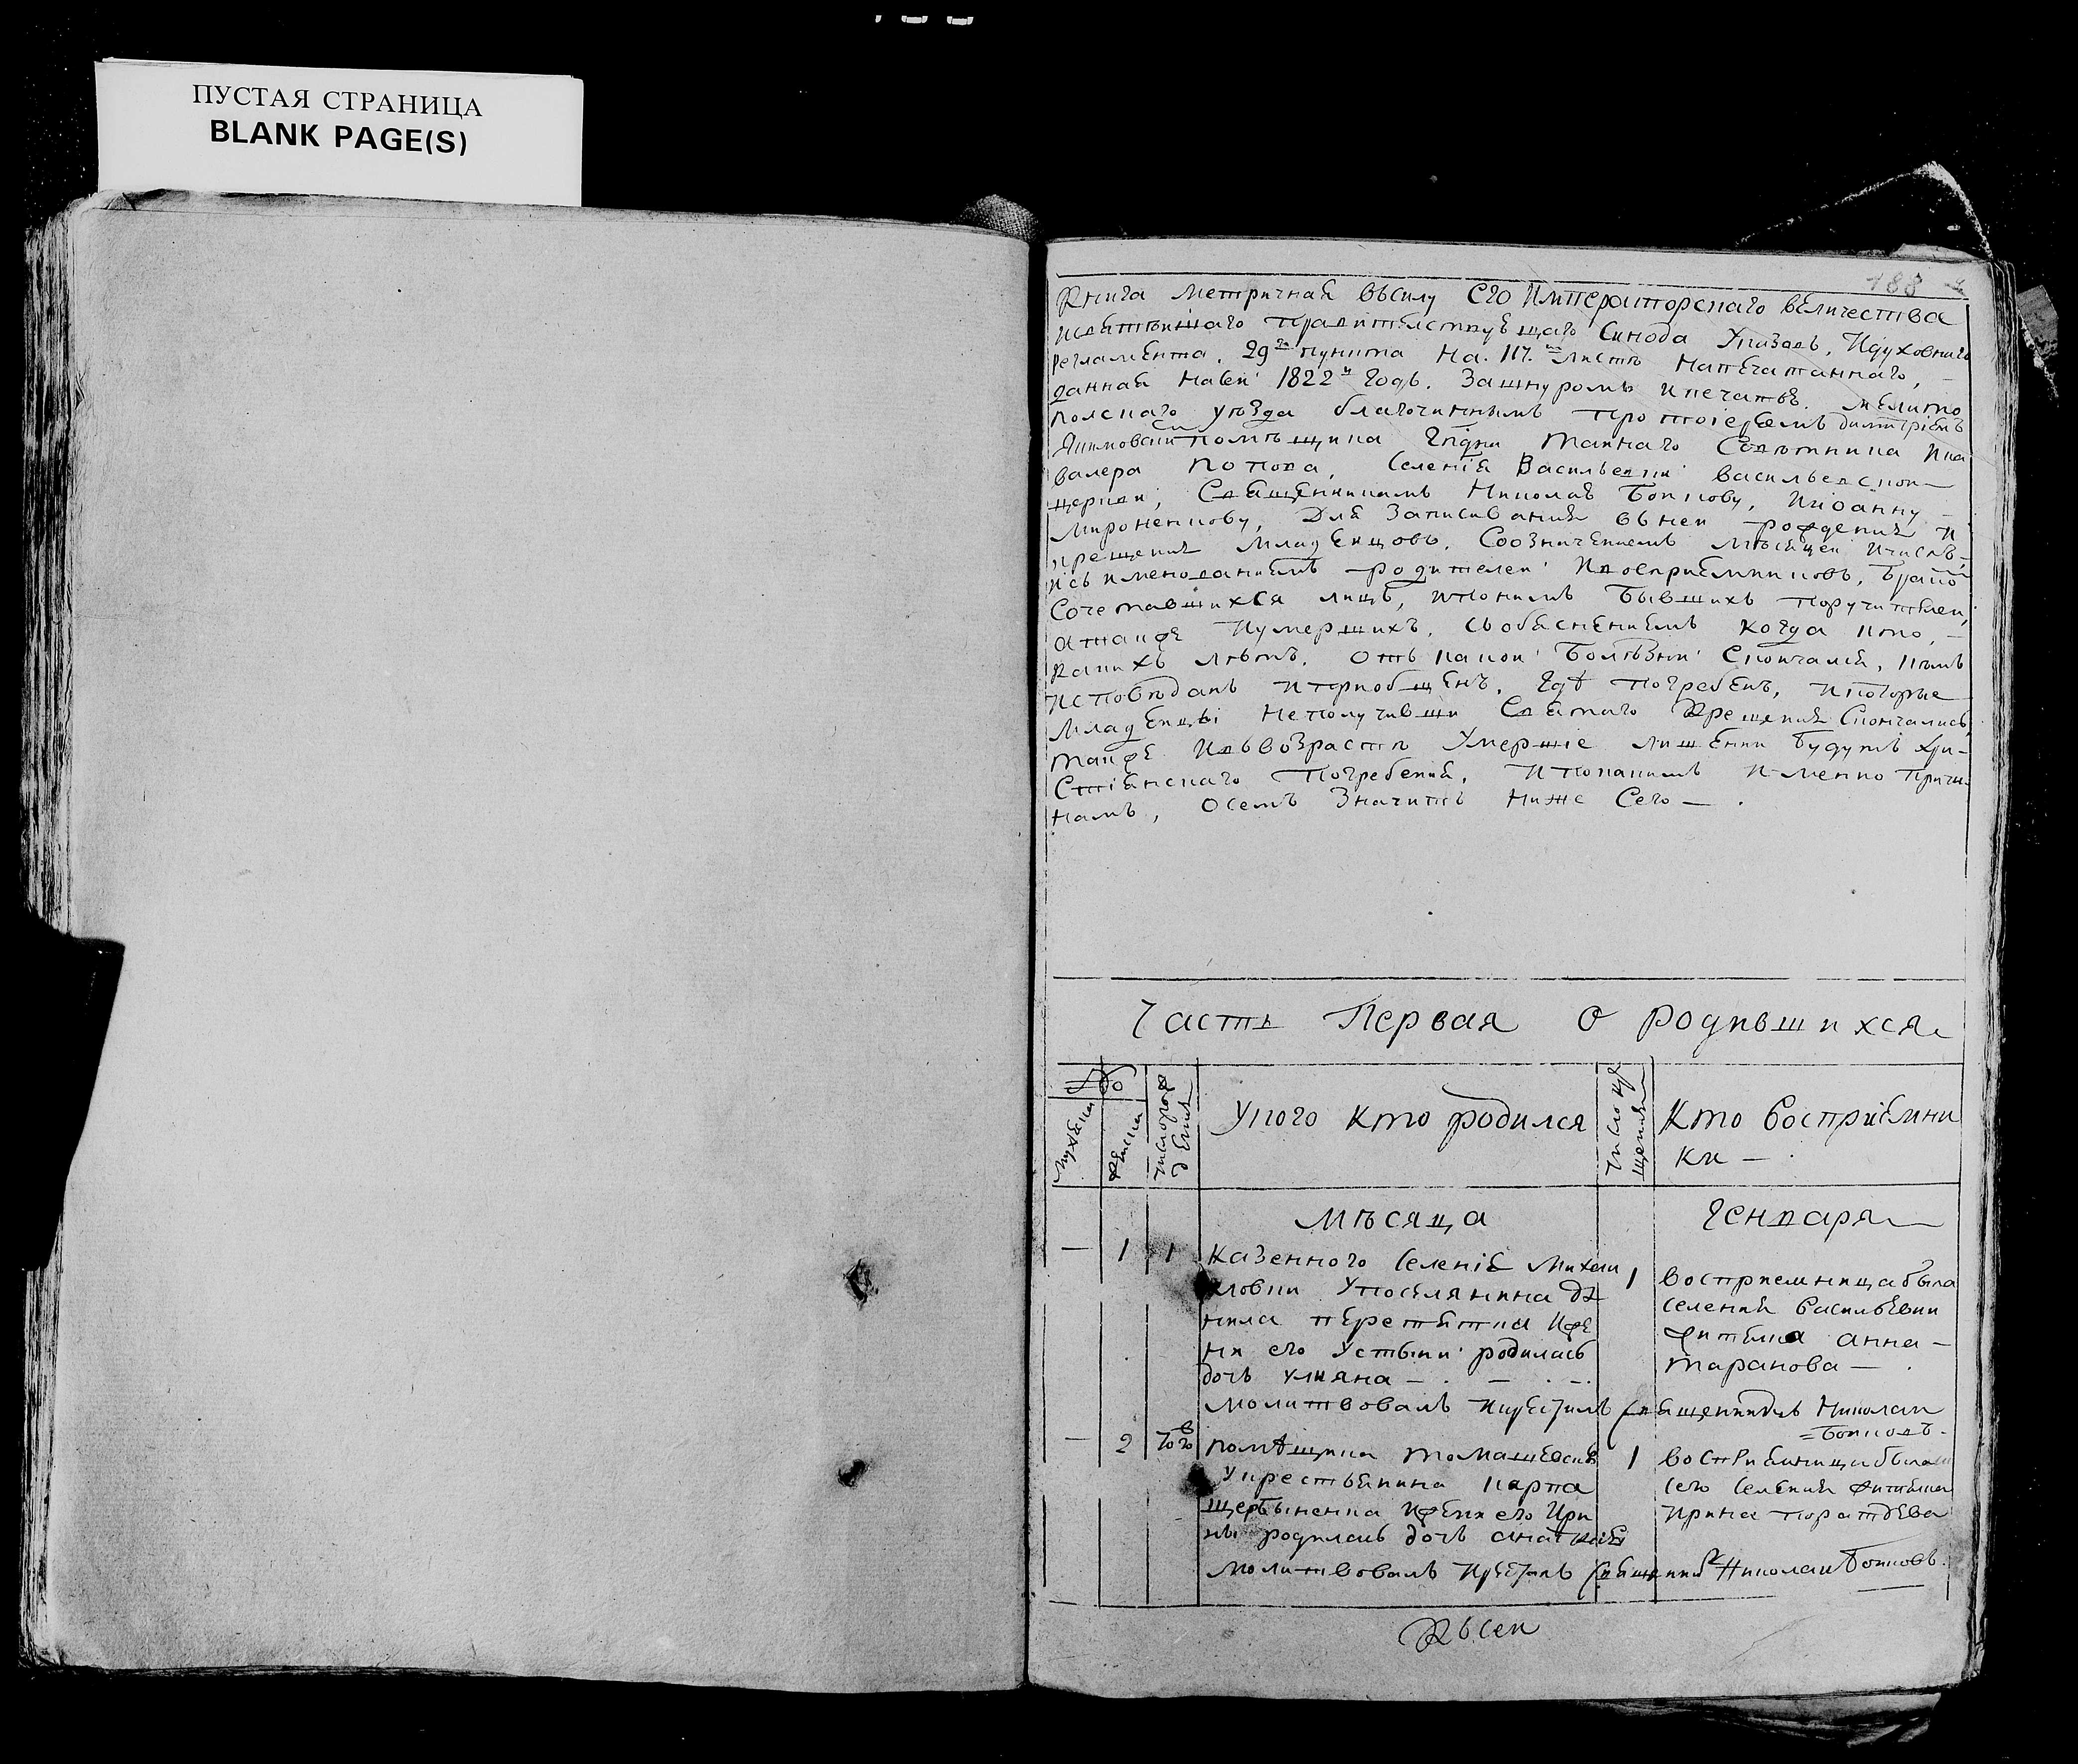 ПУСТАЯ СТРАНИЦА
BLANK PAGE(S)
188
Книга метричная въсилу Его Императорскаго величества
исвятѣйшаго правительствующаго Синода Указовъ, Идуховнаго
регламента, 29го пункта на 117м листѣ напечатаннаго, —
данная насей 1822й годъ. Зашнуромъ ипечатью. мелито
полскаго уѣзда благочиннымъ протоіереемъ димитріемъ
помѣщика Гпдна таинаго Совѣтника Ика
валера попова, селенія Васильевки васильевской
церкви, Священникамъ Николаю Боикову, Иіоанну —
Мироненкову, Для Записиванія внеи рожденія и
крещенія младенцовъ, Соозначениемъ мѣсяцеи ичислъ,
исъименованіемъ родителеи Ивосприемниковъ, Брако
Сочетавшихся лицъ, ипокимъ бывшихъ поручителеи,
атакже Иумершихъ, собясненіемъ когда кто, —
какихъ лѣтъ, отъ какои болѣзни Скончался, кѣмъ
исповѣданъ иприобщенъ, гдѣ погребенъ, икоторые
младенцы неполучивши Святаго Крещения Скончались,
также Ивъвозрастѣ Умершіе лишенни будутъ хри-
стіянскаго погребения, Ипокакимъ Именно причи-
намъ, осемъ Значитъ ниже Сего — .
Часть Первая о родившихся
№
Мужеска
женска
число рож
дения
Укого кто родился
число кре
щения
Кто восприемни
ки — .
мѣсяца Генваря
— 1 1 Казенного селенія Михаи
ловки Упоселянина да
нила перетятка Иже
ни его Устыни родилась
дочь улияна — . — . — .
1 восприемница была
селения василъевки
жителка анна —
таранова — .
молитвовалъ Икрестилъ священникъ Николаи
=Боиковъ.
— 2 помѣщика томашевск
Укрестьянина карпа
щербыненка Ижени его Ири
ны родилась дочь
1 восприемница была
сего селения жителка
Ирина
молитвовалъ Икрестилъ священникъ Николаи Боиковъ.